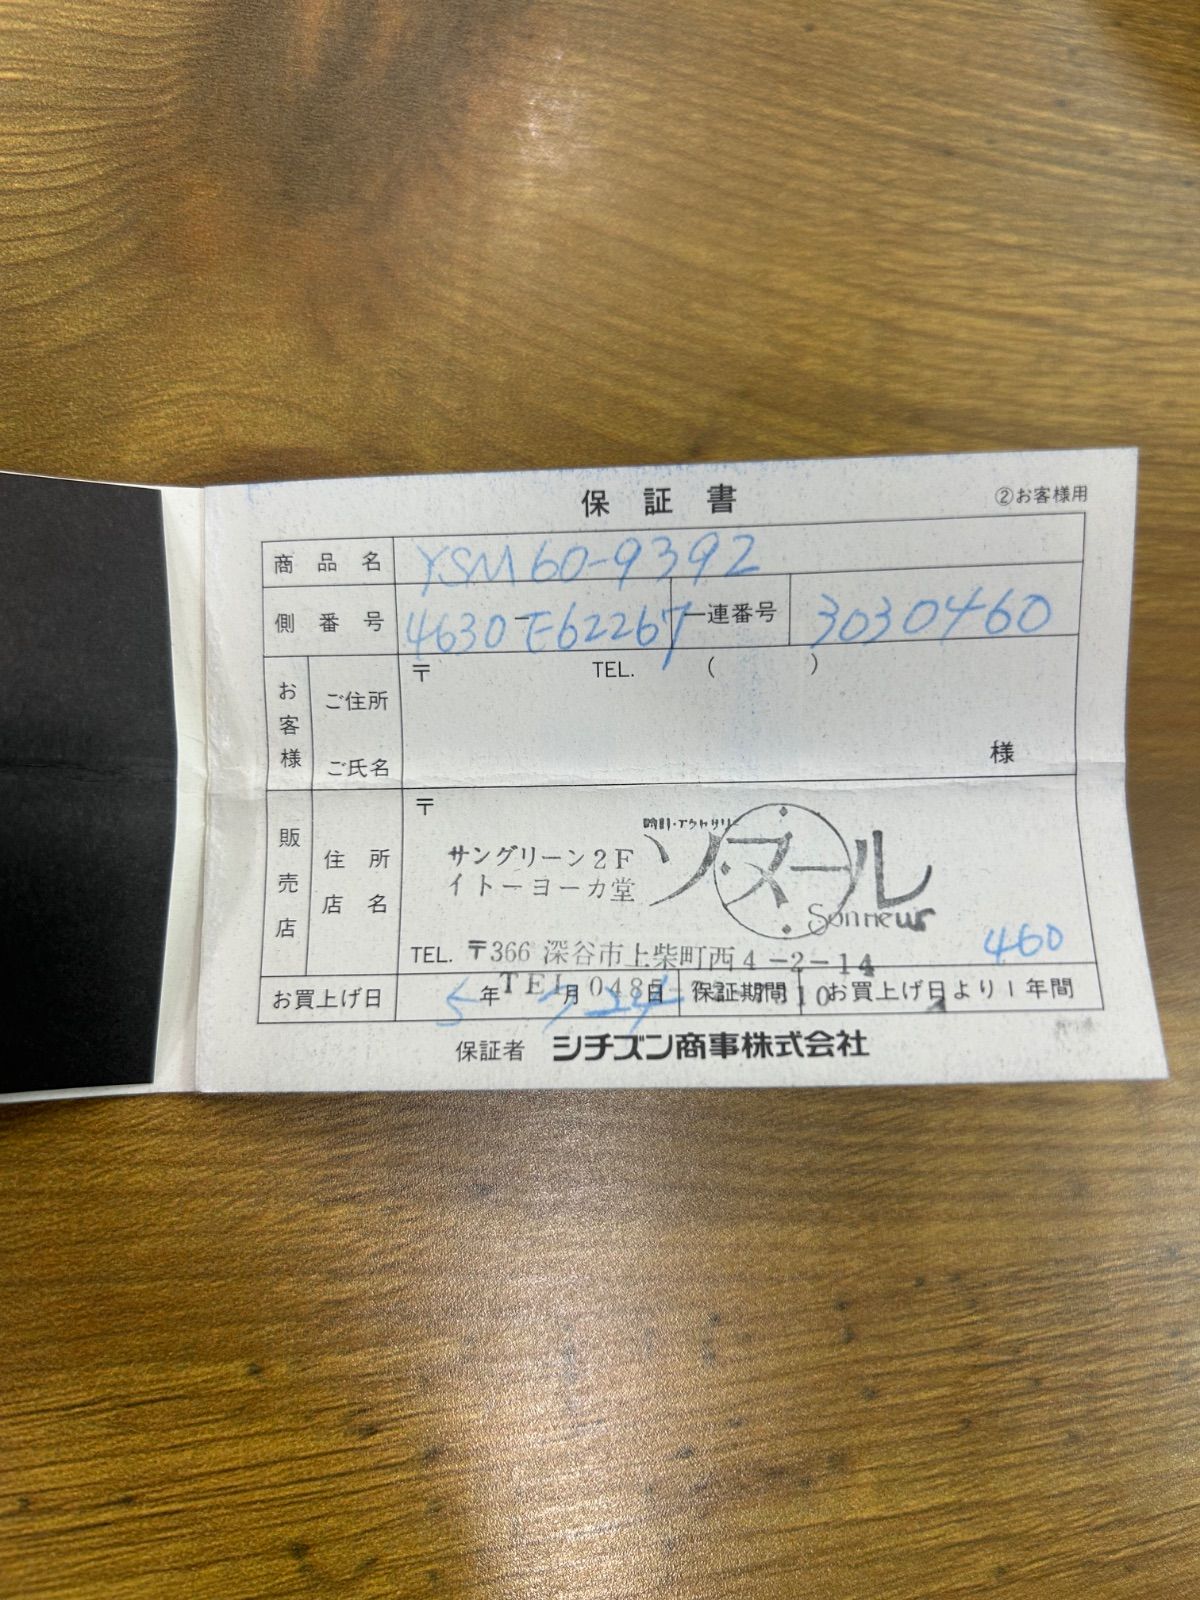 保証書 ②お客様用
商品名 YSM60-9392
側番号 4630-E62267 一連番号 3030460
お客様 ご住所 〒 TEL. ( )
ご氏名 様
販売店 住所 店名 〒
時計・アクセサリー
サングリーン2F ソヌール
イトーヨーカ堂 Sonneur
460
TEL. 〒366 深谷市上柴町西4-2-14
TEL 048
お買上げ日 5年7月24日 保証期間 お買上げ日より1年間
保証者 シチズン商事株式会社